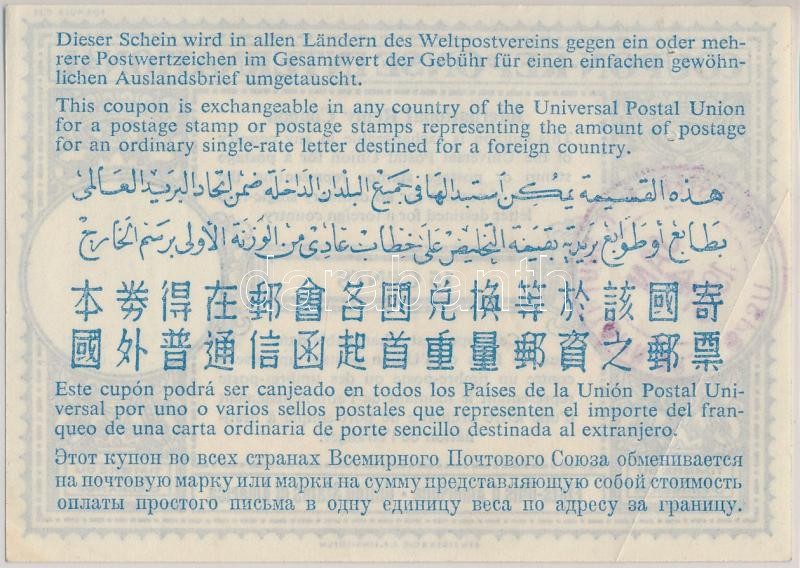 Dieser Schein wird in allen Ländern des Weltpostvereins gegen ein oder meh-
rere Postwertzeichen im Gesamtwert der Gebühr für einen einfachen gewöhn-
lichen Auslandsbrief umgetauscht.
This coupon is exchangeable in any country of the Universal Postal Union
for a postage stamp or postage stamps representing the amount of postage
for an ordinary single-rate letter destined for a foreign country.
هذه القسيمة يمكن استبدالها في جميع البلدان الداخلة ضمن اتحاد البريد العالمى
بطابع أو طوابع بريدية بقيمة التخليص على خطاب عادى من الوزنة الأولى برسم الخارج
本券得在郵會各國兌換等於該國寄
國外普通信函起首重量郵資之郵票
Este cupón podrá ser canjeado en todos los Países de la Unión Postal Uni-
versal por uno o varios sellos postales que representen el importe del fran-
queo de una carta ordinaria de porte sencillo destinada al extranjero.
Этот купон во всех странах Всемирного Почтового Союза обменивается
на почтовую марку или марки на сумму представляющую собой стоимость
оплаты простого письма в одну единицу веса по адресу за границу.
darabanth